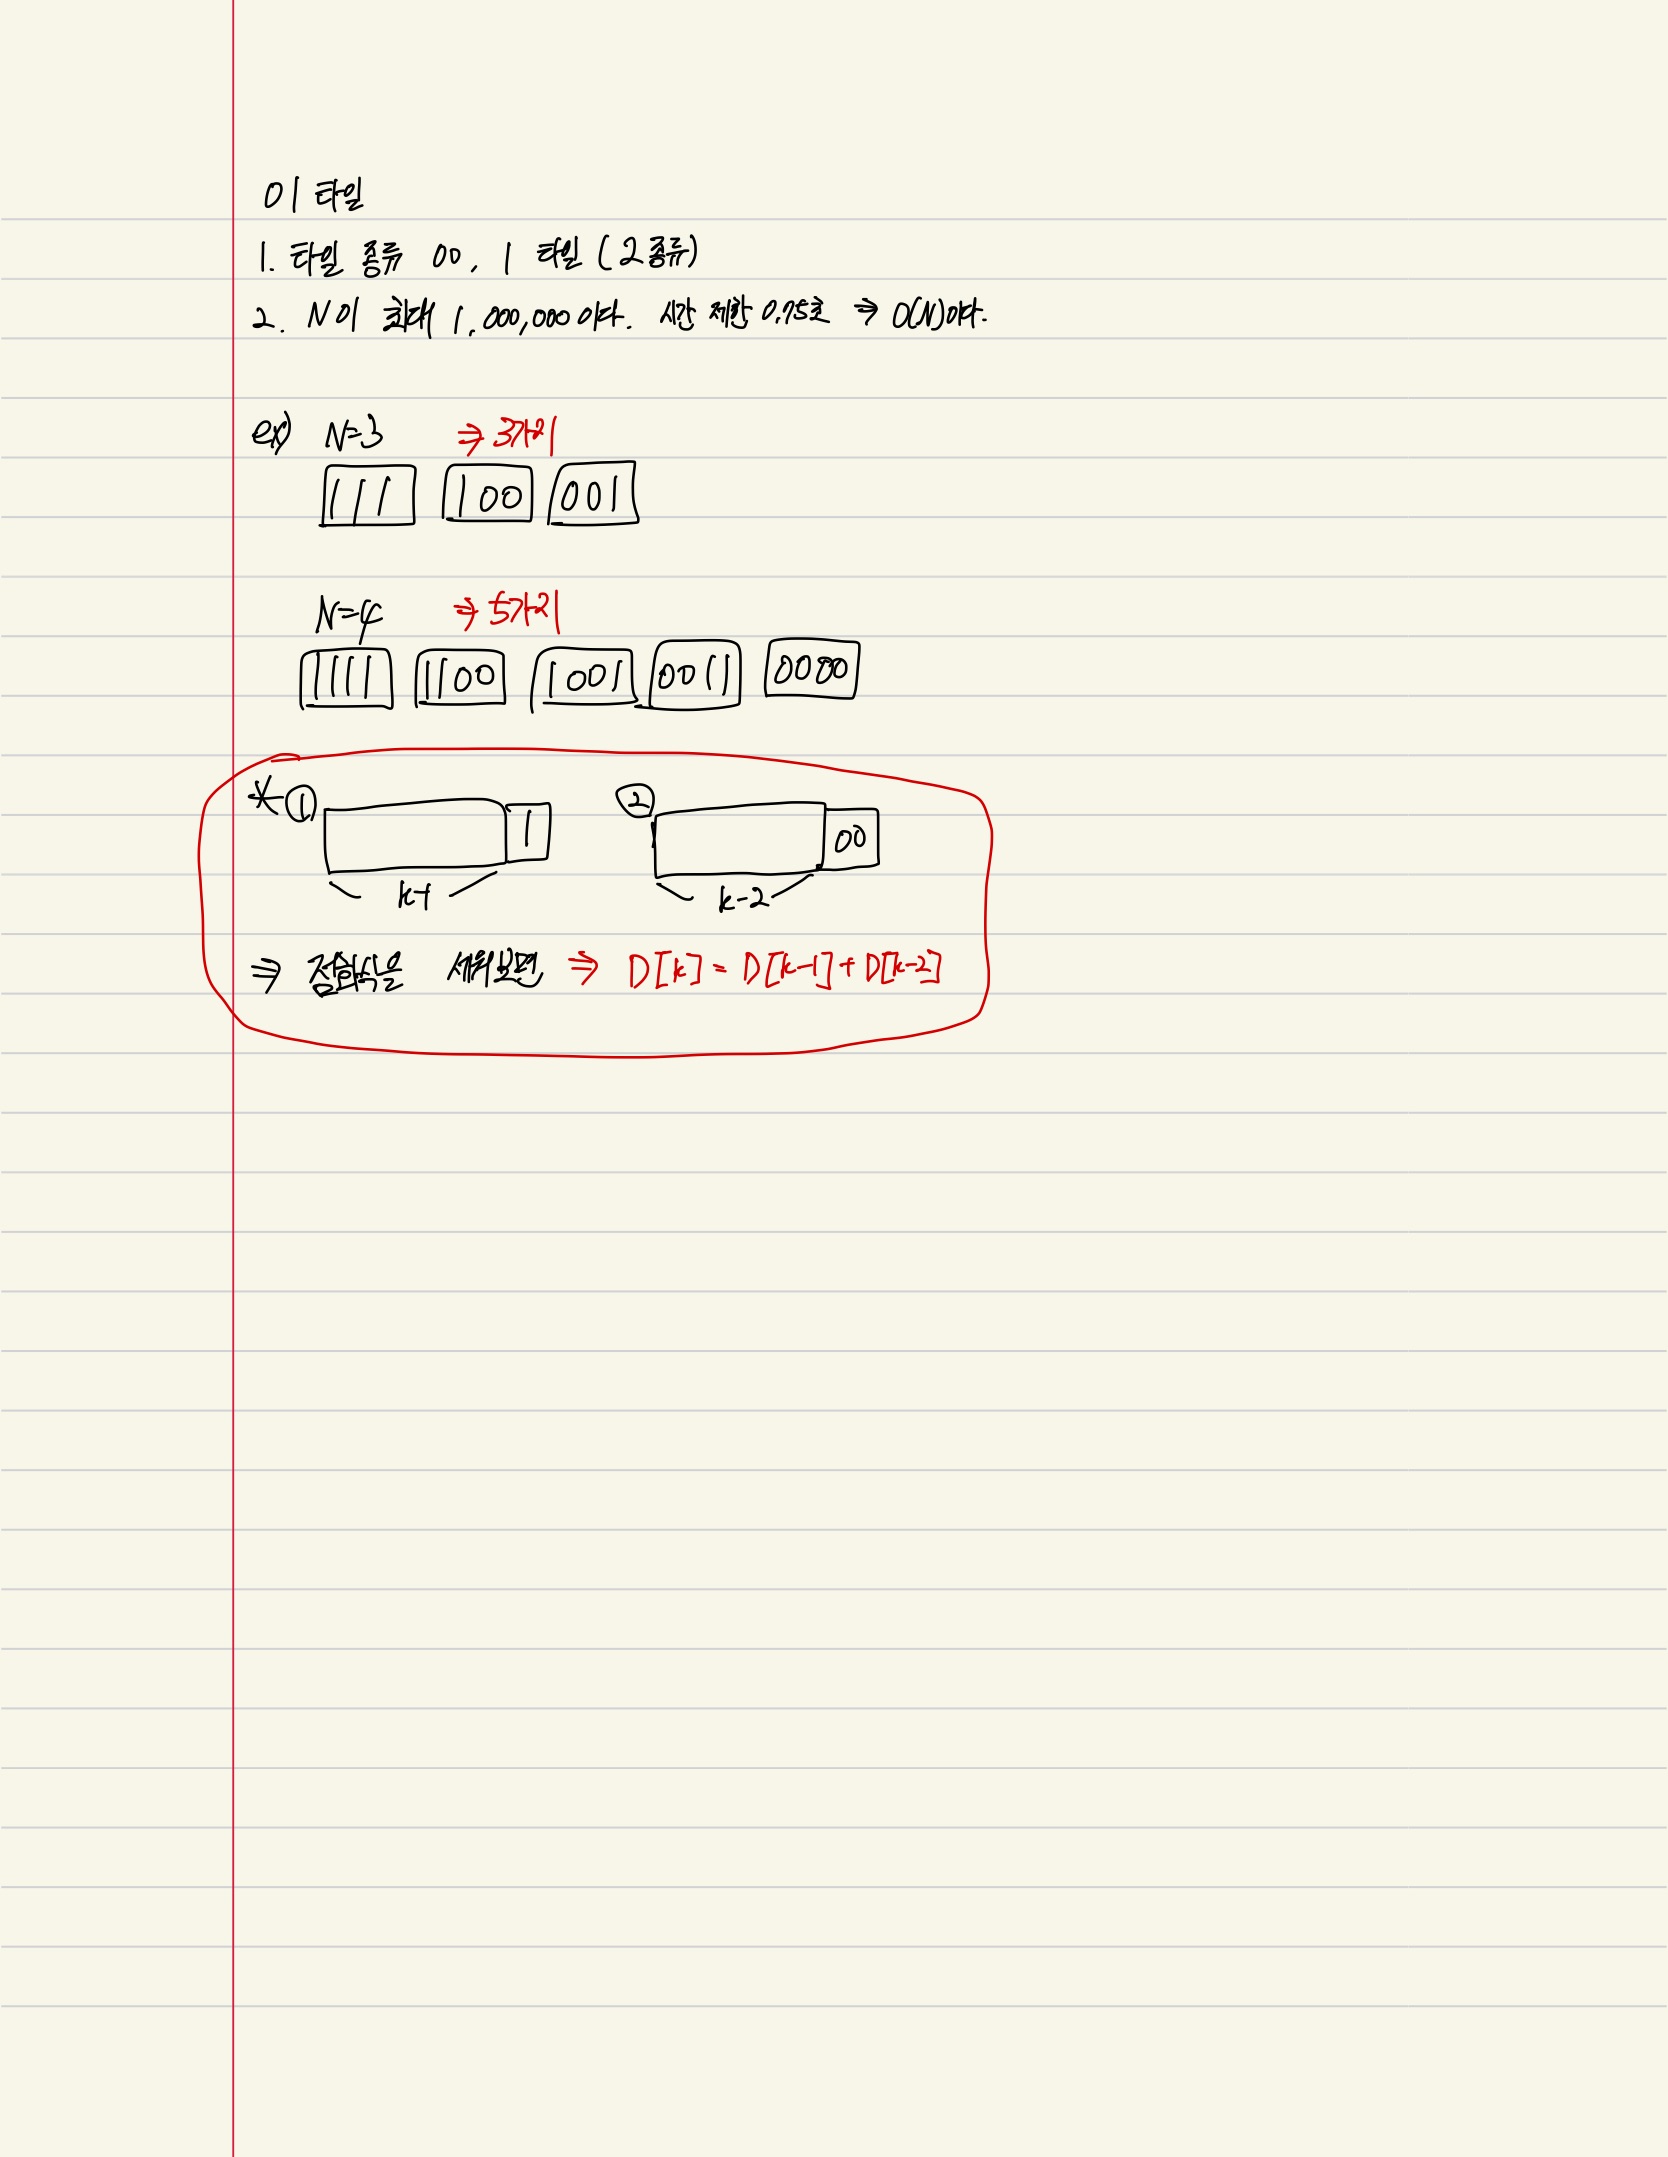 01 타일
1. 타일 종류 00, 1 타일 (2종류)
2. N이 최대 1,000,000이다. 시간 제한 0.75초 ⇒ O(N)이다.
ex) N=3 ⇒ 3가지
111 100 001
N=4 ⇒ 5가지
1111 1100 1001 0011 0000
* ① 1 ② 00
k-1 k-2
⇒ 점화식을 세워보면, ⇒ D[k] = D[k-1] + D[k-2]